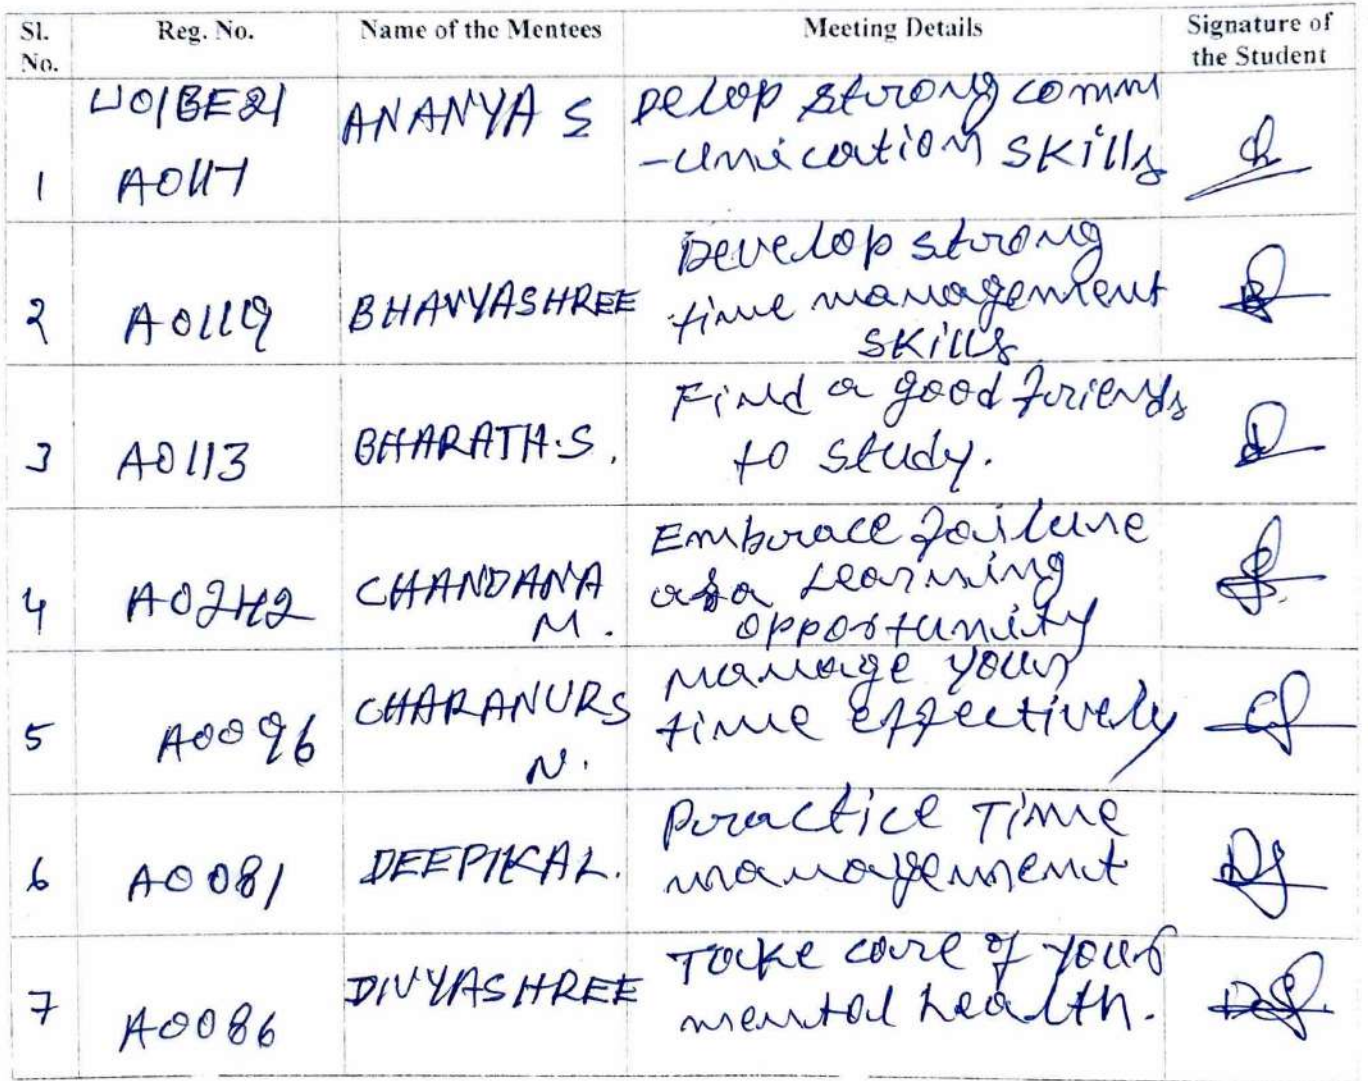 Sl. No. Reg. No. Name of the Mentees Meeting Details Signature of the Student
1 U01BE21 A0117 ANANYA S Delop strong comm
-unication skills
2 A0119 BHAVYASHREE Develop strong
time management
skills
3 A0113 BHARATH.S. Find a good friends
to study.
4 A0242 CHANDANA M. Embrace failure
as a Learning
opportunity
5 A0096 CHARANURS N. manage your
time effectively
6 A0081 DEEPIKA L. Practice Time
management
7 A0086 DIVYASHREE Take care of your
mental health.